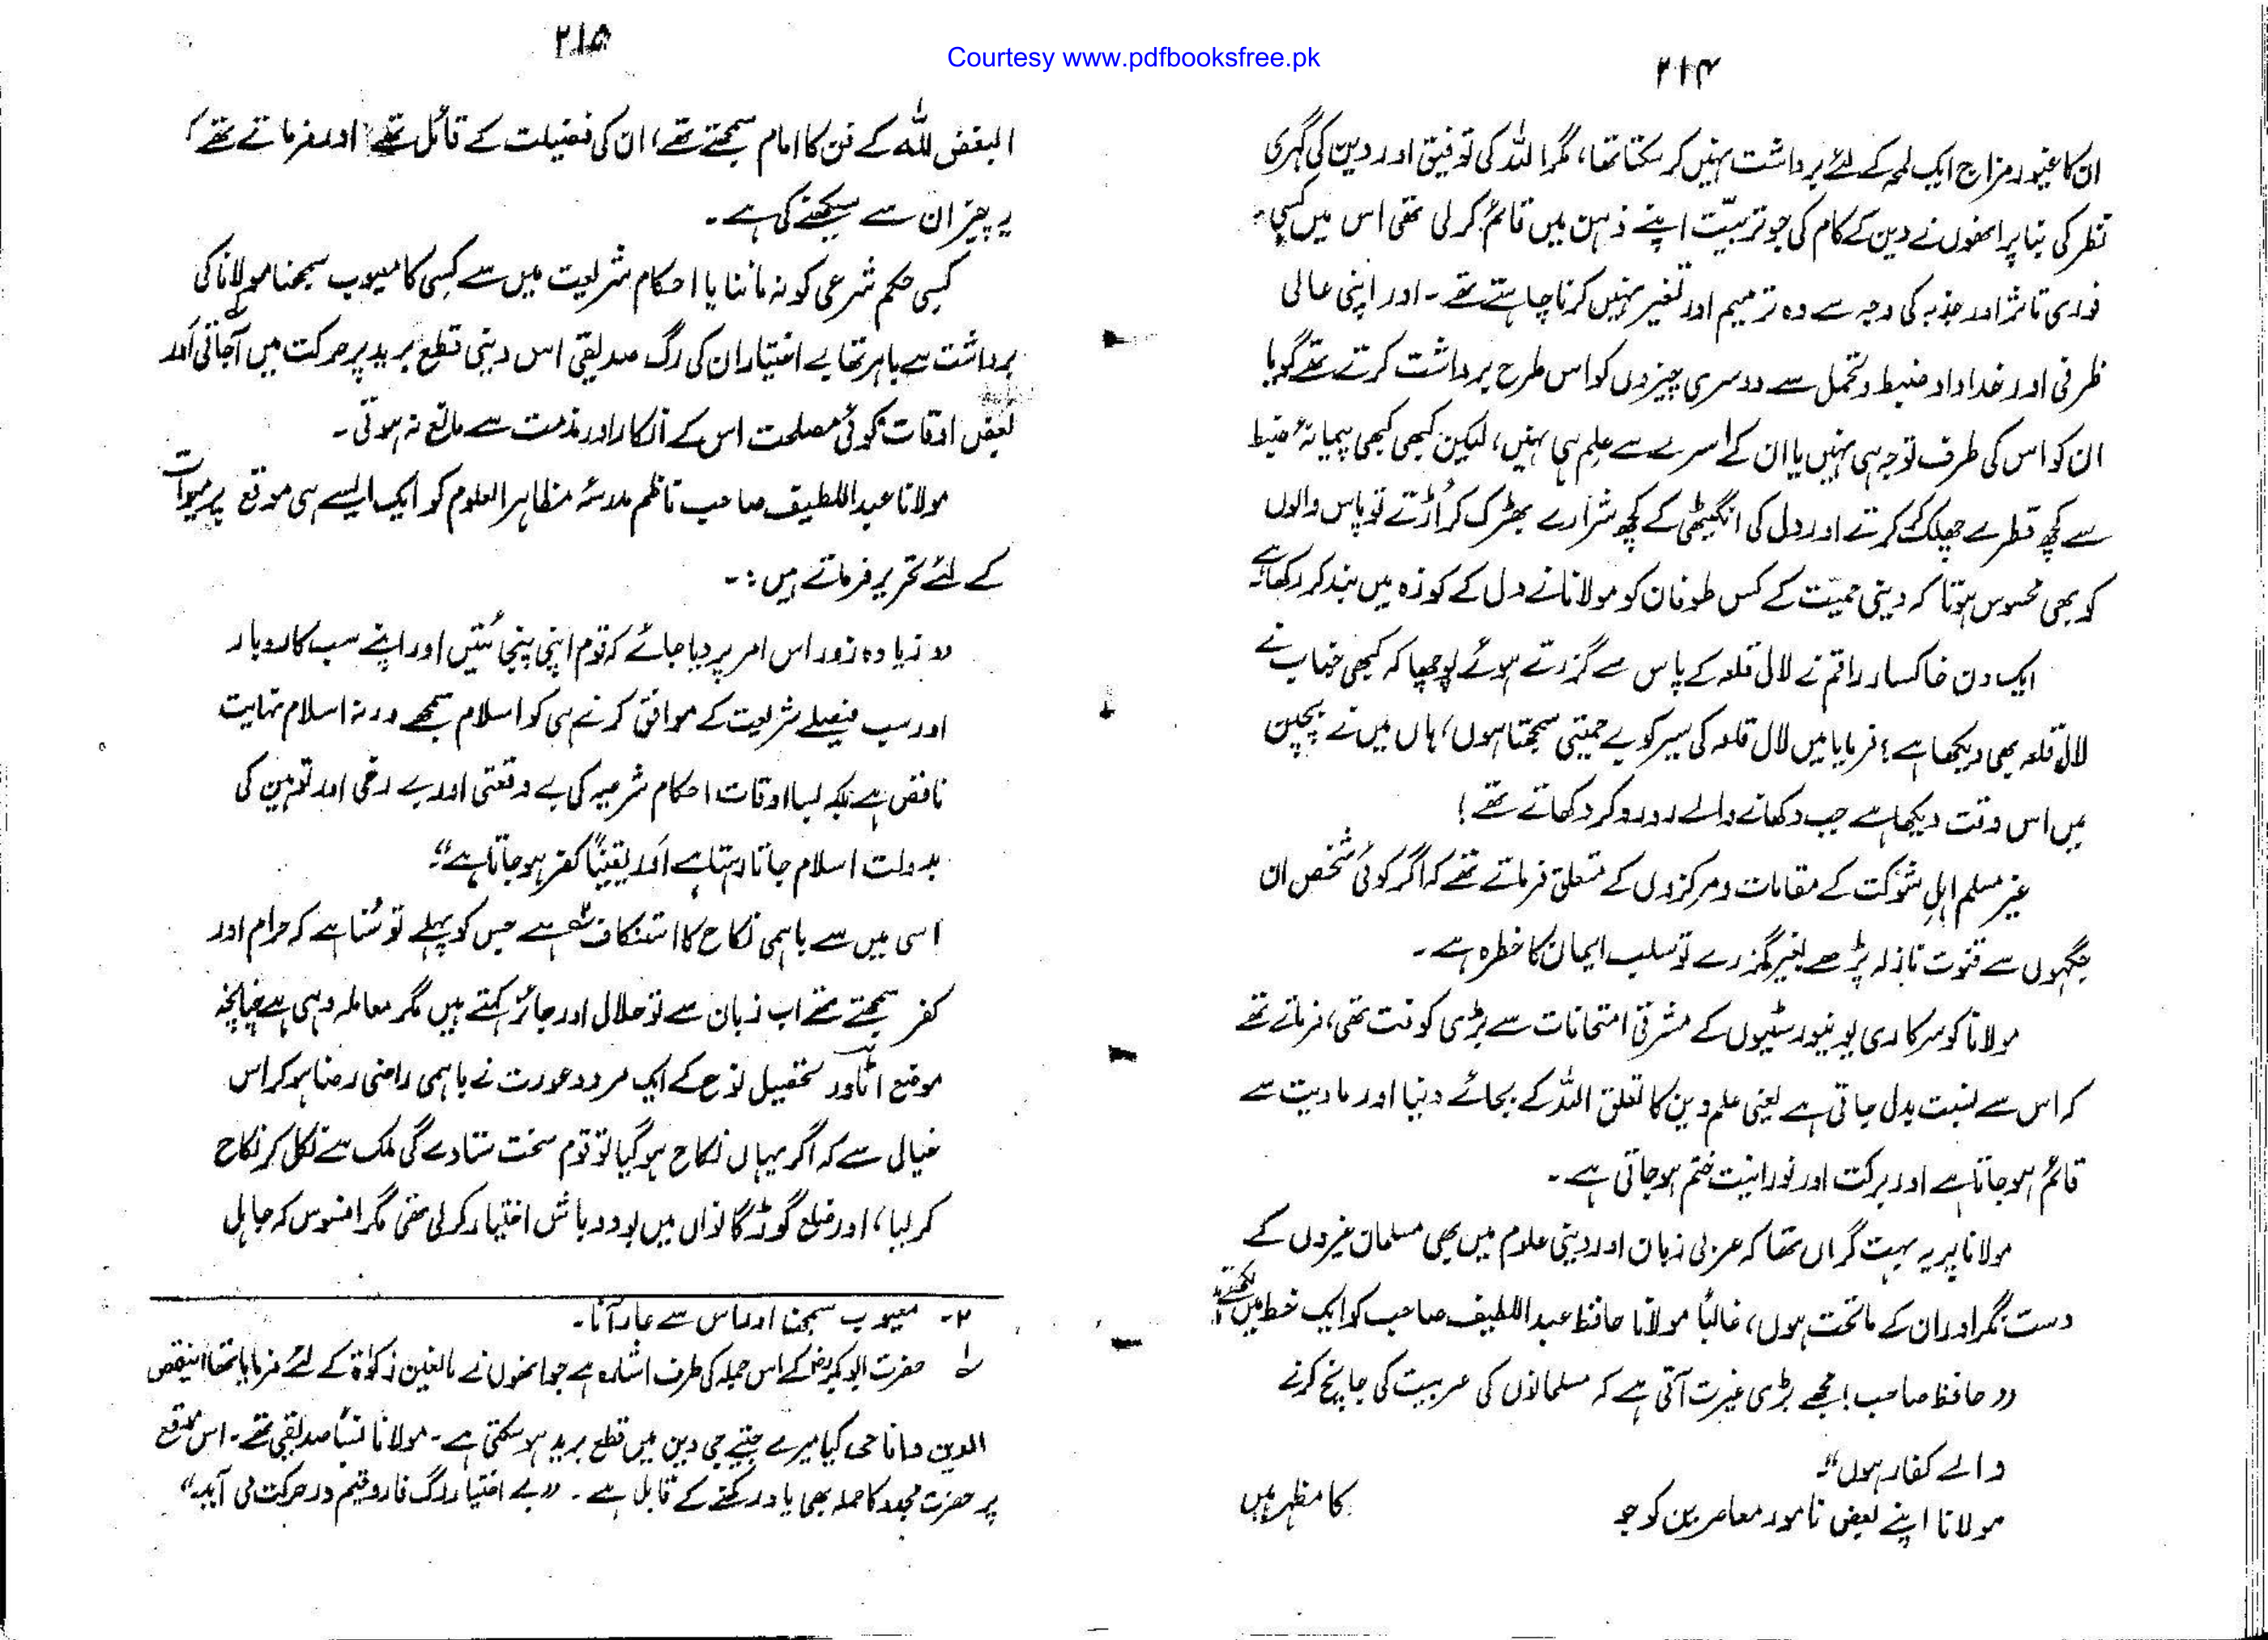 Courtesy www.pdfbooksfree.pk
۲۱۴
ان کا غیور مزاج ایک لمحہ کے لئے برداشت نہیں کر سکتا تھا، مگر اللہ کی توفیق اور دین کی گہری
نظر کی بنا پر انھوں نے دین کے کام کی جو تربیّت اپنے ذہن میں قائم کر لی تھی اس میں کسی
فوری تاثر اور جذبہ کی وجہ سے وہ ترمیم اور تغیر نہیں کرنا چاہتے تھے۔ اور اپنی عالی
ظرفی اور خداداد ضبط و تحمل سے دوسری چیزوں کو اس طرح برداشت کرتے تھے گویا
ان کو اس کی طرف توجہ ہی نہیں یا ان کے اسرے سے علم ہی نہیں، لیکن کبھی کبھی پیمانۂ ضبط
سے کچھ قطرے چھلک کر گرتے اور دل کی انگیٹھی کے کچھ شرارے بھڑک کر اُڑتے تو پاس والوں
کو بھی محسوس ہوتا کہ دینی حمیّت کے کس طوفان کو مولانا نے دل کے کوزہ میں بند کر رکھا ہے
ایک دن خاکسار راقم نے لال قلعہ کے پاس سے گزرتے ہوئے پوچھا کہ کبھی جناب نے
لال قلعہ بھی دیکھا ہے؛ فرمایا میں لال قلعہ کی سیر کو بے حمیتی سمجھتا ہوں، ہاں میں نے بچپن
میں اس وقت دیکھا ہے جب دکھانے والے رو رو کر دکھاتے تھے!
غیر مسلم اہلِ شوکت کے مقامات و مرکزوں کے متعلق فرماتے تھے کہ اگر کوئی شخص ان
جگہوں سے قنوت نازلہ پڑھے بغیر گزرے تو سلب ایمان کا خطرہ ہے۔
مولانا کو سرکاری یونیورسٹیوں کے مشرقی امتحانات سے بڑی کوفت تھی، فرماتے تھے
کہ اس سے نسبت بدل جاتی ہے یعنی علم دین کا تعلق اللہ کے بجائے دنیا اور مادیت سے
قائم ہو جاتا ہے اور برکت اور نورانیت ختم ہو جاتی ہے۔
مولانا پر یہ بہت گراں تھا کہ عربی زبان اور دینی علوم میں بھی مسلمان غیروں کے
دست نگر اور ان کے ماتحت ہوں، غالباً مولانا حافظ عبداللطیف صاحب کو ایک خط میں لکھتے
" حافظ صاحب! مجھے بڑی غیرت آتی ہے کہ مسلمانوں کی عربیت کی جانچ کرنے
والے کفار ہوں"۔
مولانا اپنے بعض نامور معاصرین کو جو کا مظہر ہیں
۲۱۵
البغض للہ کے فن کا امام سمجھتے تھے، ان کی فضیلت کے قائل تھے اور فرماتے تھے کہ
یہ چیز ان سے سیکھنے کی ہے۔
کسی حکم شرعی کو نہ ماننا یا احکام شریعت میں سے کسی کا معیوب سمجھنا مولانا کی
برداشت سے باہر تھا بے اختیار ان کی رگ صدیقی اس دینی قطع برید پر حرکت میں آجاتی اور
بعض اوقات کوئی مصلحت اس کے انکار اور مذمت سے مانع نہ ہوتی۔
مولانا عبداللطیف صاحب ناظم مدرسۂ مظاہر العلوم کو ایک ایسے ہی موقع پر میوات
کے لئے تحریر فرماتے ہیں:۔
" زیادہ زور اس امر پر دیا جائے کہ قوم اپنی پنچائتیں اور اپنے سب کاروبار
اور سب فیصلے شریعت کے موافق کرنے ہی کو اسلام سمجھے ورنہ اسلام نہایت
ناقص ہے بلکہ بسا اوقات احکام شرعیہ کی بے وقعتی اور بے رخی اور توہین کی
بدولت اسلام جاتا رہتا ہے اور یقیناً کفر ہو جاتا ہے"۔
اسی میں سے باہمی نکاح کا استنکاف ہے جس کو پہلے تو سُنا ہے کہ حرام اور
کفر سمجھتے تھے اب زبان سے تو حلال اور جائز کہتے ہیں مگر معاملہ وہی ہے چنانچہ
موقع اٹاور تحصیل نوح کے ایک مرد عورت نے باہمی راضی رضا ہو کر اس
خیال سے کہ اگر یہاں نکاح ہو گیا تو قوم سخت ستاوے گی ملک سے نکل کر نکاح
کر لیا، اور ضلع گوڑگانواں میں بود و باش اختیار کر لی تھی مگر افسوس کہ جاہل
۲۔ معیوب سمجھنا اور اس سے عار آنا۔
۱ حضرت ابوبکرؓ کے اس جملہ کی طرف اشارہ ہے جو انھوں نے مانعین زکوٰۃ کے لئے فرمایا تھا اینقص
الدین و انا حی کیا میرے جیتے جی دین میں قطع برید ہو سکتی ہے۔ مولانا نسباً صدیقی تھے۔ اس موقع
پر حضرت مجدد کا جملہ بھی یاد رکھنے کے قابل ہے۔ "بے اختیار رگ فاروقیم در حرکت می آید"